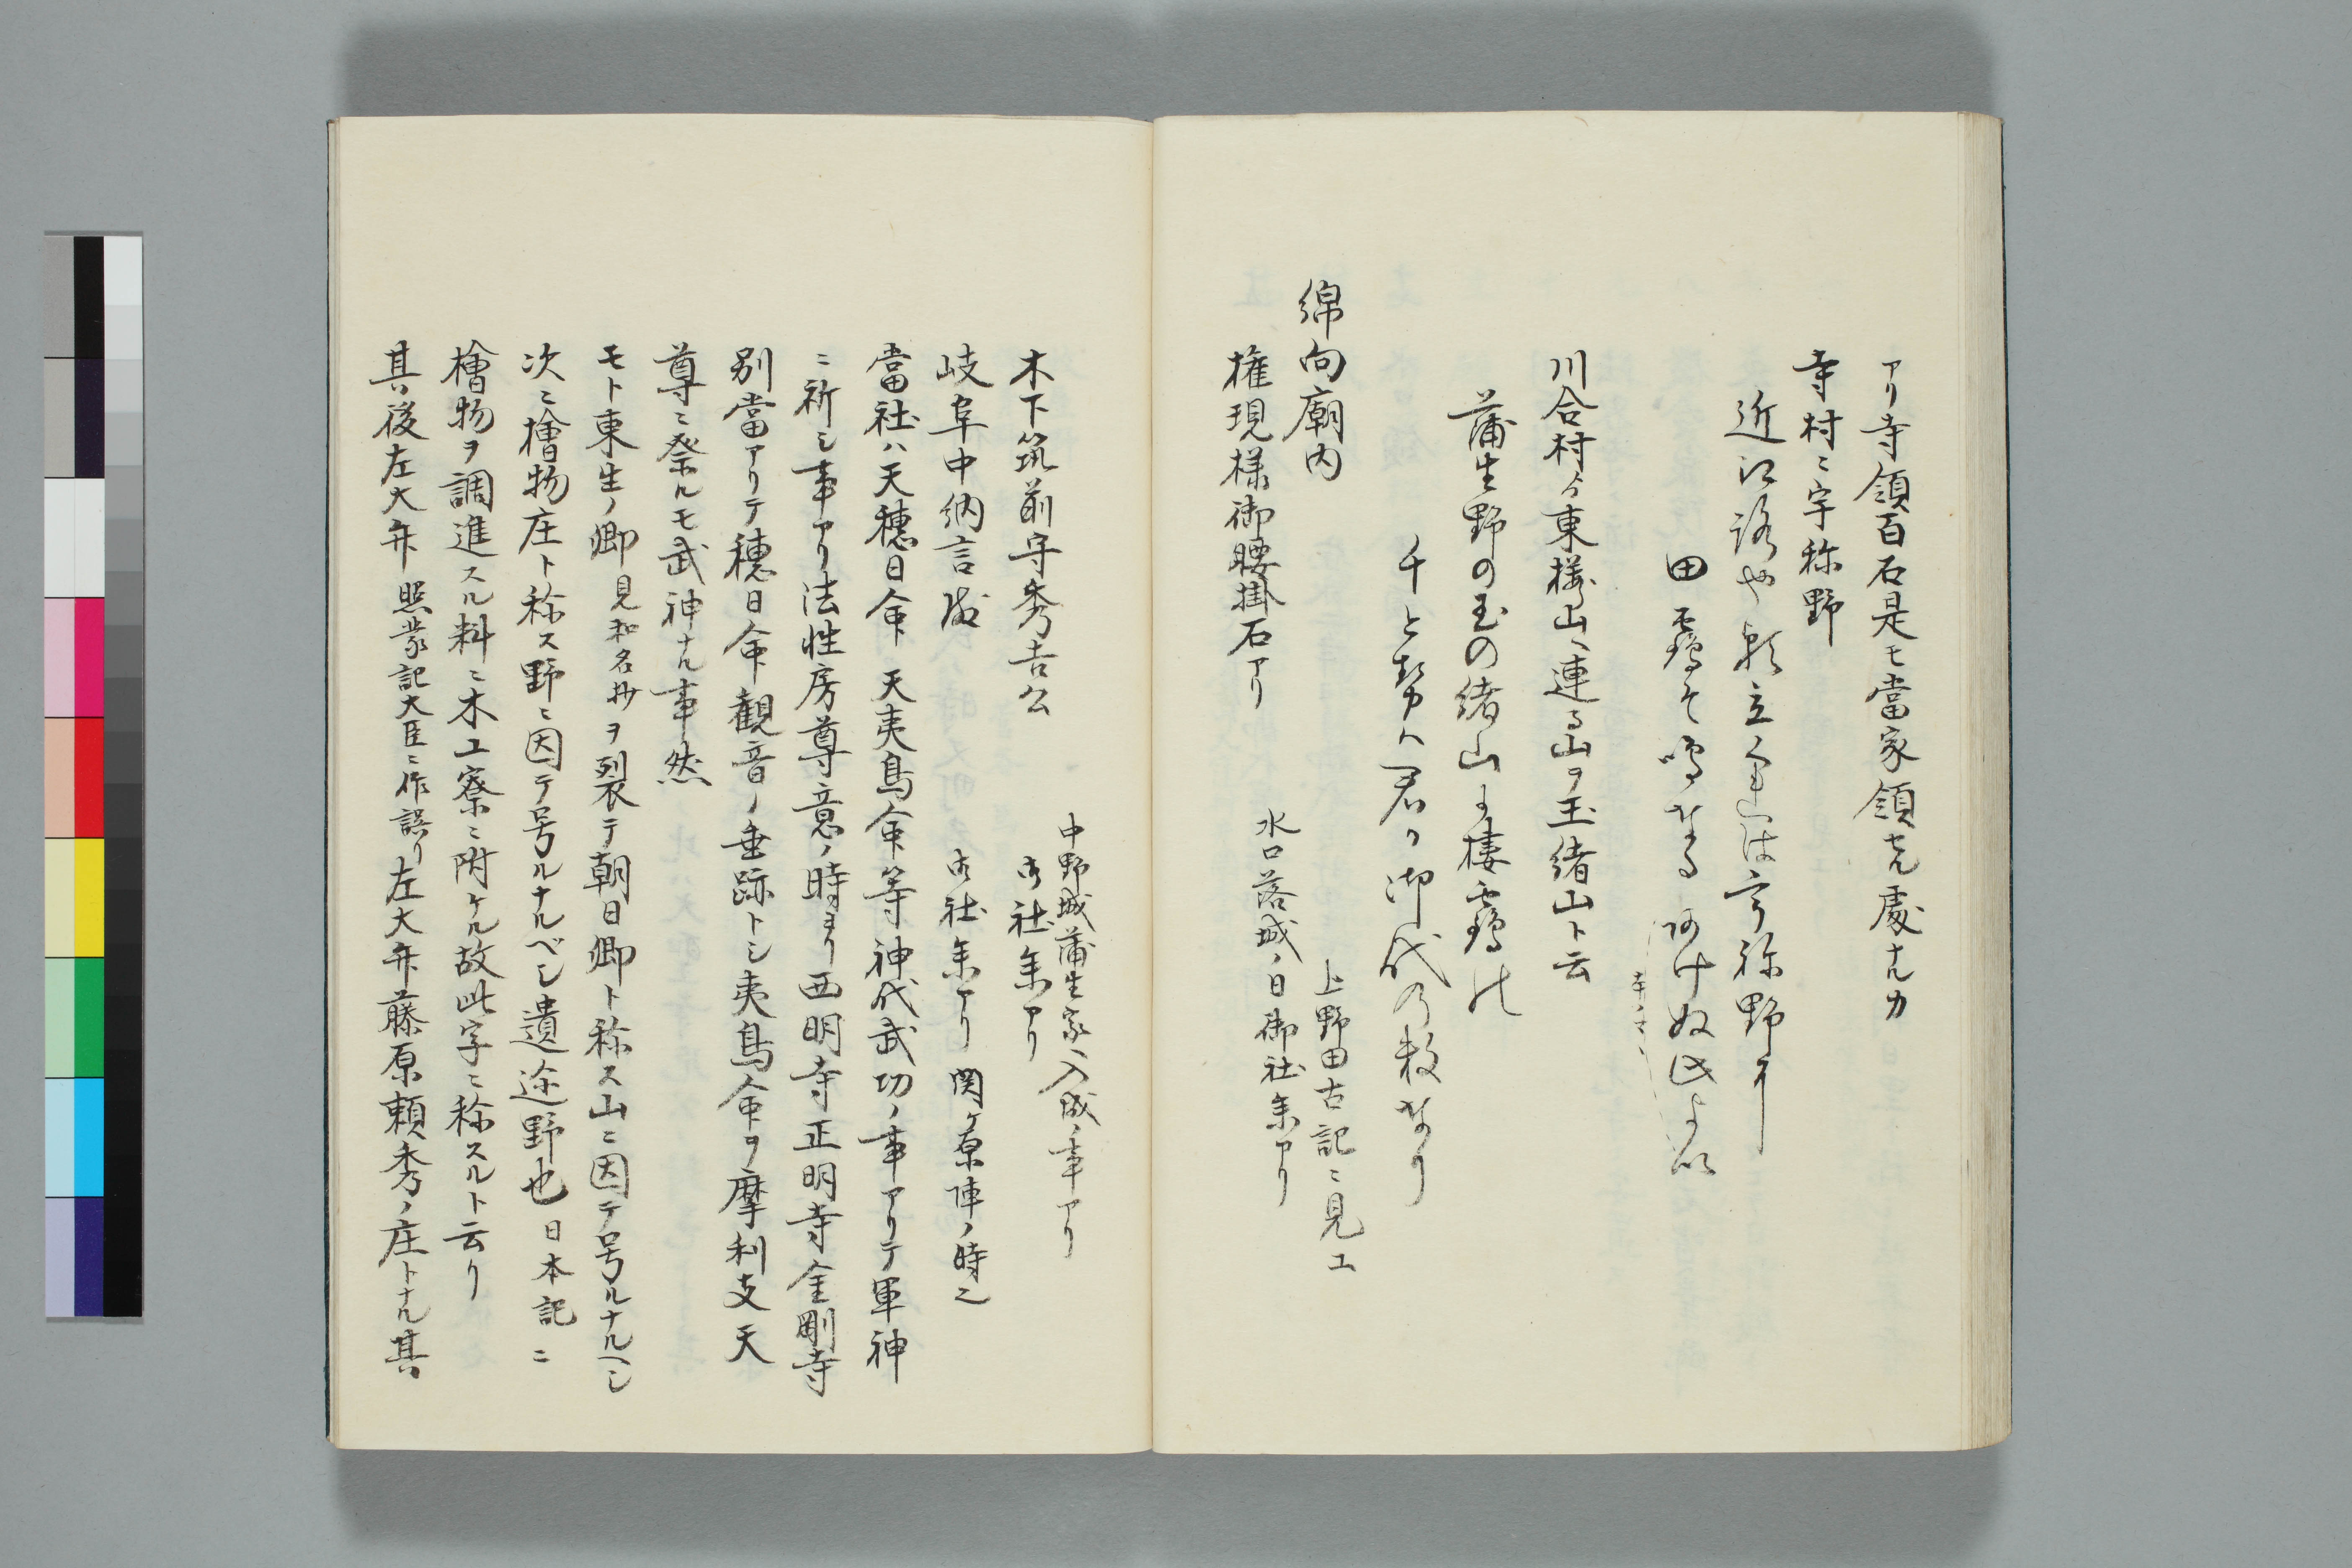 アリ寺領百石是モ當家領セル處ナルカ
寺村ニ宇称野
近江路や朝立くれは宇祢野に
田靏そ鳴なる明ぬ此よは
本ノマヽ
川合村ゟ東桜山ヘ連る山ヲ玉緒山ト云
蒲生野の玉の緒山に棲靏の
千とせハ君か御代の数なり
綿向廟内
上野田古記ニ見エ
権現様御腰掛石アリ
水口落城ノ日御社参アリ
中野城蒲生家ヘ入城ノ事アリ
木下筑前守秀吉公
御社参アリ
岐阜中納言殿
御社参アリ 関ヶ原陣ノ時之
當社ハ天穂日命 天夷鳥命等神代武功ノ事アリテ軍神
ニ祈シ事アリ法性房尊意ノ時ヨリ西明寺正明寺金剛寺
別當アリテ穂日命觀音ノ垂跡トシ夷鳥命ヲ摩利支天
尊ニ祭ルモ武神ナル事然
モト東生ノ郷見和名抄ヲ裂テ朝日郷ト称ス山ニ因テ号ルナルヘシ
次ニ檜物庄ト称ス野ニ因テ号ルナルベシ遺迩野也日本記ニ
檜物ヲ調進スル料ニ木工寮ニ附ケル故此字ニ称スルト云リ
其後左大弁照蒙記大臣ニ作誤リ左大弁藤原頼秀ノ庄トナル其